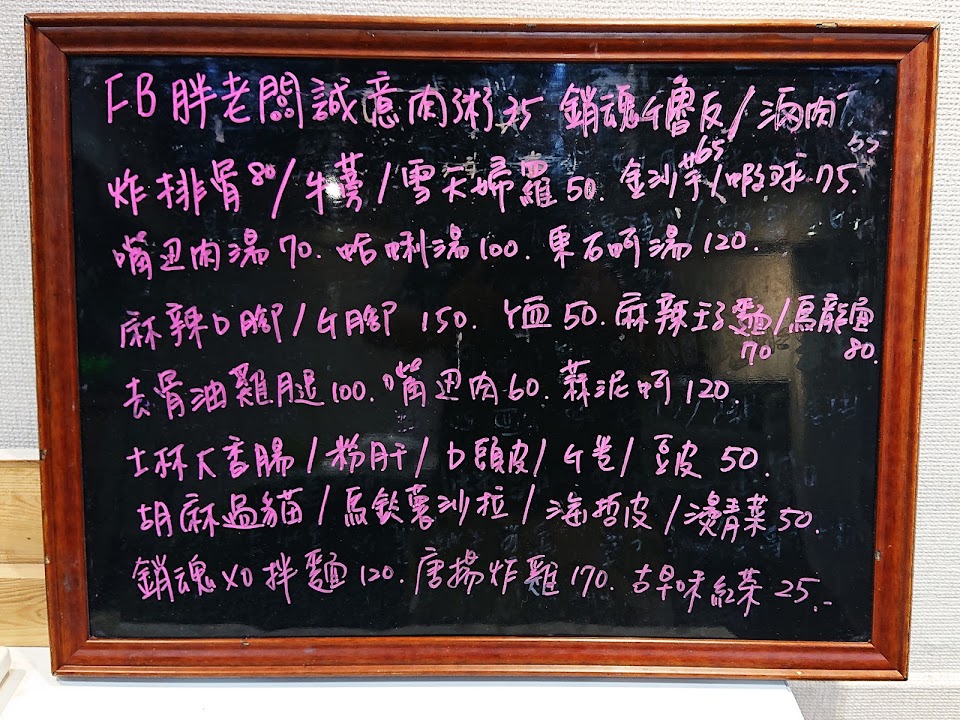 FB胖老闆誠意肉粥35 銷魂ㄣ魯反/滷肉55
炸排骨80/牛蒡/雪天婦羅50. 金沙芋65/蝦球75.
嘴边肉湯70. 蛤蜊湯100. 東石蚵湯120.
麻辣D腳/ㄣ腳150. 丫血50. 麻辣王子麵70/烏龍麵80.
去骨油雞腿100. 嘴边肉60. 蒜泥蚵120.
士林大香腸/粉肝/D頭皮/ㄣ卷/豆皮50.
胡麻過貓/馬鈴薯沙拉/海哲皮/燙青菜50.
銷魂XO拌麵120. 唐揚炸雞170. 古早味紅茶25.